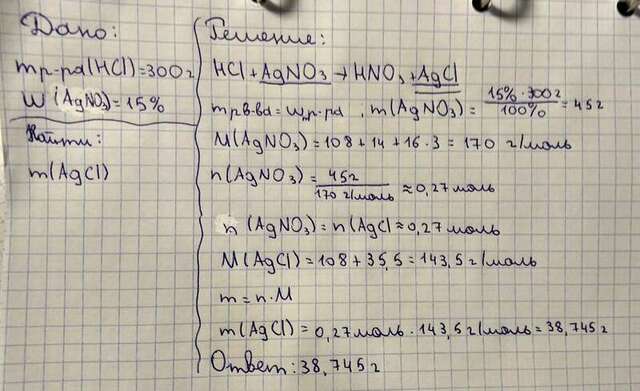 Дано:
mр-ра(HCl)=300г
W(AgNO3)=15%
Найти:
m(AgCl)
Решение:
HCl+AgNO3→HNO3+AgCl
mрв-ва=w·р-ра; m(AgNO3)=15%·300г/100%=45г
M(AgNO3)=108+14+16·3=170 г/моль
n(AgNO3)=45г/170г/моль≈0,27моль
n(AgNO3)=n(AgCl≈0,27моль
M(AgCl)=108+35,5=143,5г/моль
m=n·M
m(AgCl)=0,27моль·143,5г/моль=38,745г
Ответ:38,745г